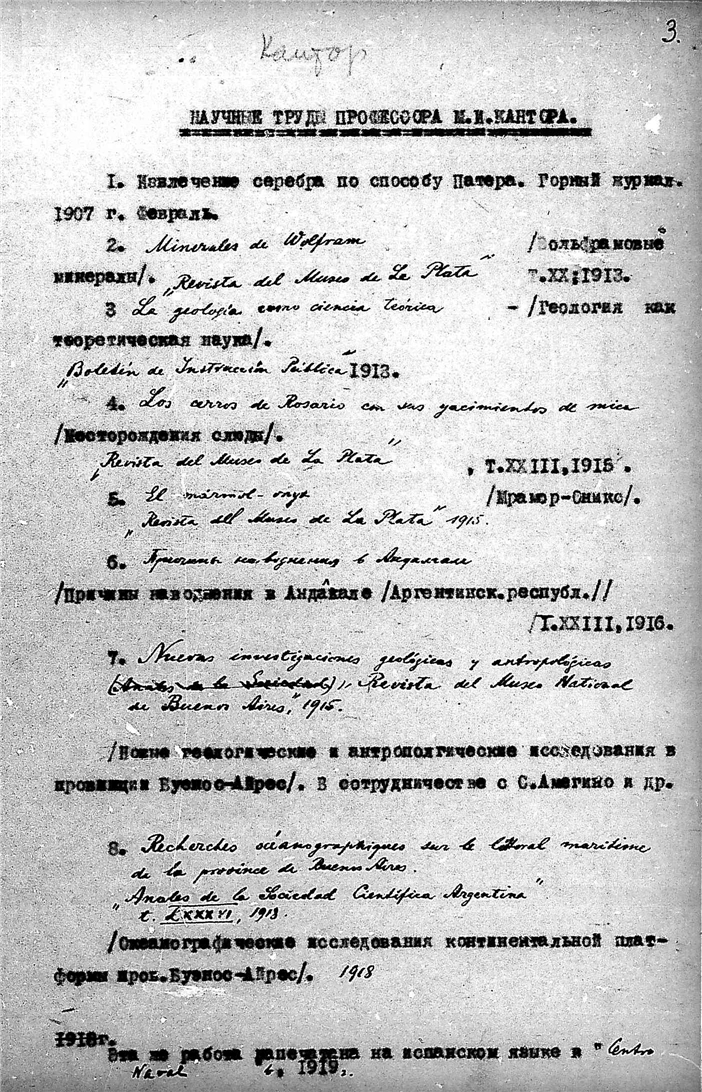 3.
Кантор
НАУЧНЫЕ ТРУДЫ ПРОФЕССОРА М.И.КАНТОРА.
I. Извлечение серебра по способу Патера. Горный журнал.
1907 г. Февраль.
2. Minerales de Wolfram /Вольфрамовые
минералы/. „Revista del Museo de La Plata" т.XX;1913.
3 La geología como ciencia teórica - /Геология как
теоретическая наука/.
„Boletín de Instrucción Pública" 1913.
4. Los cerros de Rosario con sus yacimientos de mica
/Месторождения слюды/.
„Revista del Museo de La Plata" , Т.XXIII,1915 .
5. El mármol-onyx /Мрамор-Оникс/.
„Revista del Museo de La Plata" 1915.
6. Причины наводнения в Андалгале
/Причины наводнения в Андакале /Аргентинск.республ.//
/Т.XXIII,1916.
7. Nuevas investigaciones geológicas y antropológicas
(Anales de la Sociedad) „Revista del Museo National
de Buenos Aires," 1915.
/Новые геологические и антрополгические исследования в
провинции Буенос-Айрес/. В сотрудничестве с С.Амегино и др.
8. Recherches océanographiques sur le littoral maritime
de la province de Buenos Aires.
„Anales de la Sociedad Científica Argentina"
t. LXXXVI, 1918.
/Океанографические исследования континентальной плат-
формы пров.Буенос-Айрес/. 1918
1918г.
Эта же работа напечатана на испанском языке в "Centro
Naval 1919г.